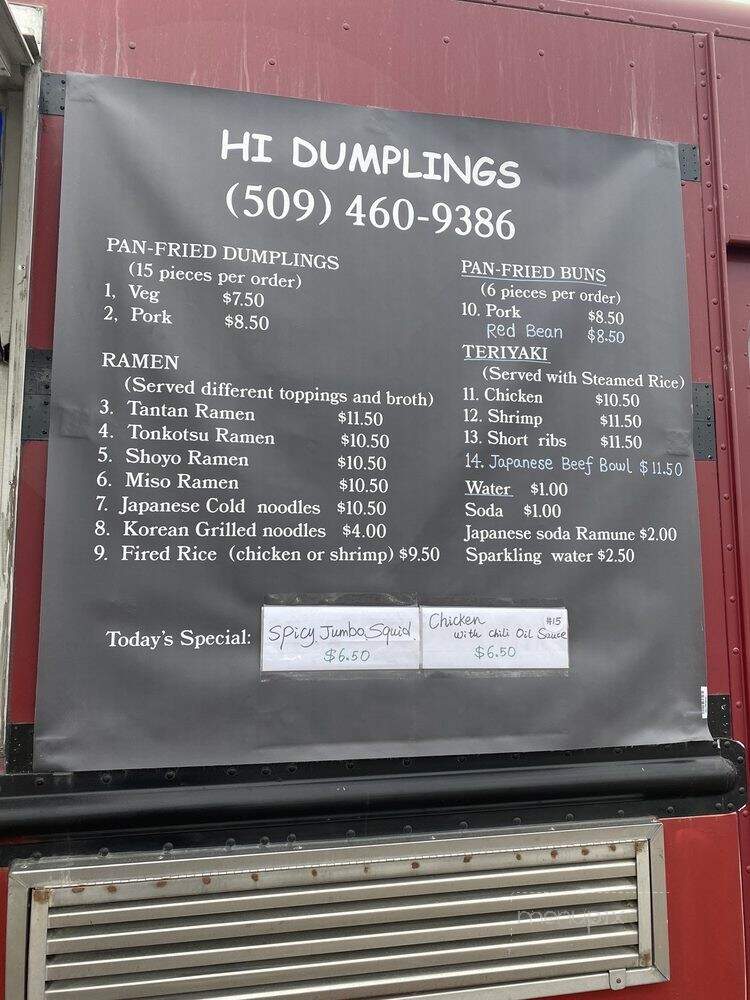 HI DUMPLINGS
(509) 460-9386
PAN-FRIED DUMPLINGS
(15 pieces per order)
1, Veg $7.50
2, Pork $8.50
RAMEN
(Served different toppings and broth)
3. Tantan Ramen $11.50
4. Tonkotsu Ramen $10.50
5. Shoyo Ramen $10.50
6. Miso Ramen $10.50
7. Japanese Cold noodles $10.50
8. Korean Grilled noodles $4.00
9. Fired Rice (chicken or shrimp) $9.50
PAN-FRIED BUNS
(6 pieces per order)
10. Pork $8.50
Red Bean $8.50
TERIYAKI
(Served with Steamed Rice)
11. Chicken $10.50
12. Shrimp $11.50
13. Short ribs $11.50
14. Japanese Beef Bowl $11.50
Water $1.00
Soda $1.00
Japanese soda Ramune $2.00
Sparkling water $2.50
Today's Special:
Spicy Jumbo Squid
$6.50
Chicken #15
with chili Oil Sauce
$6.50
menupix